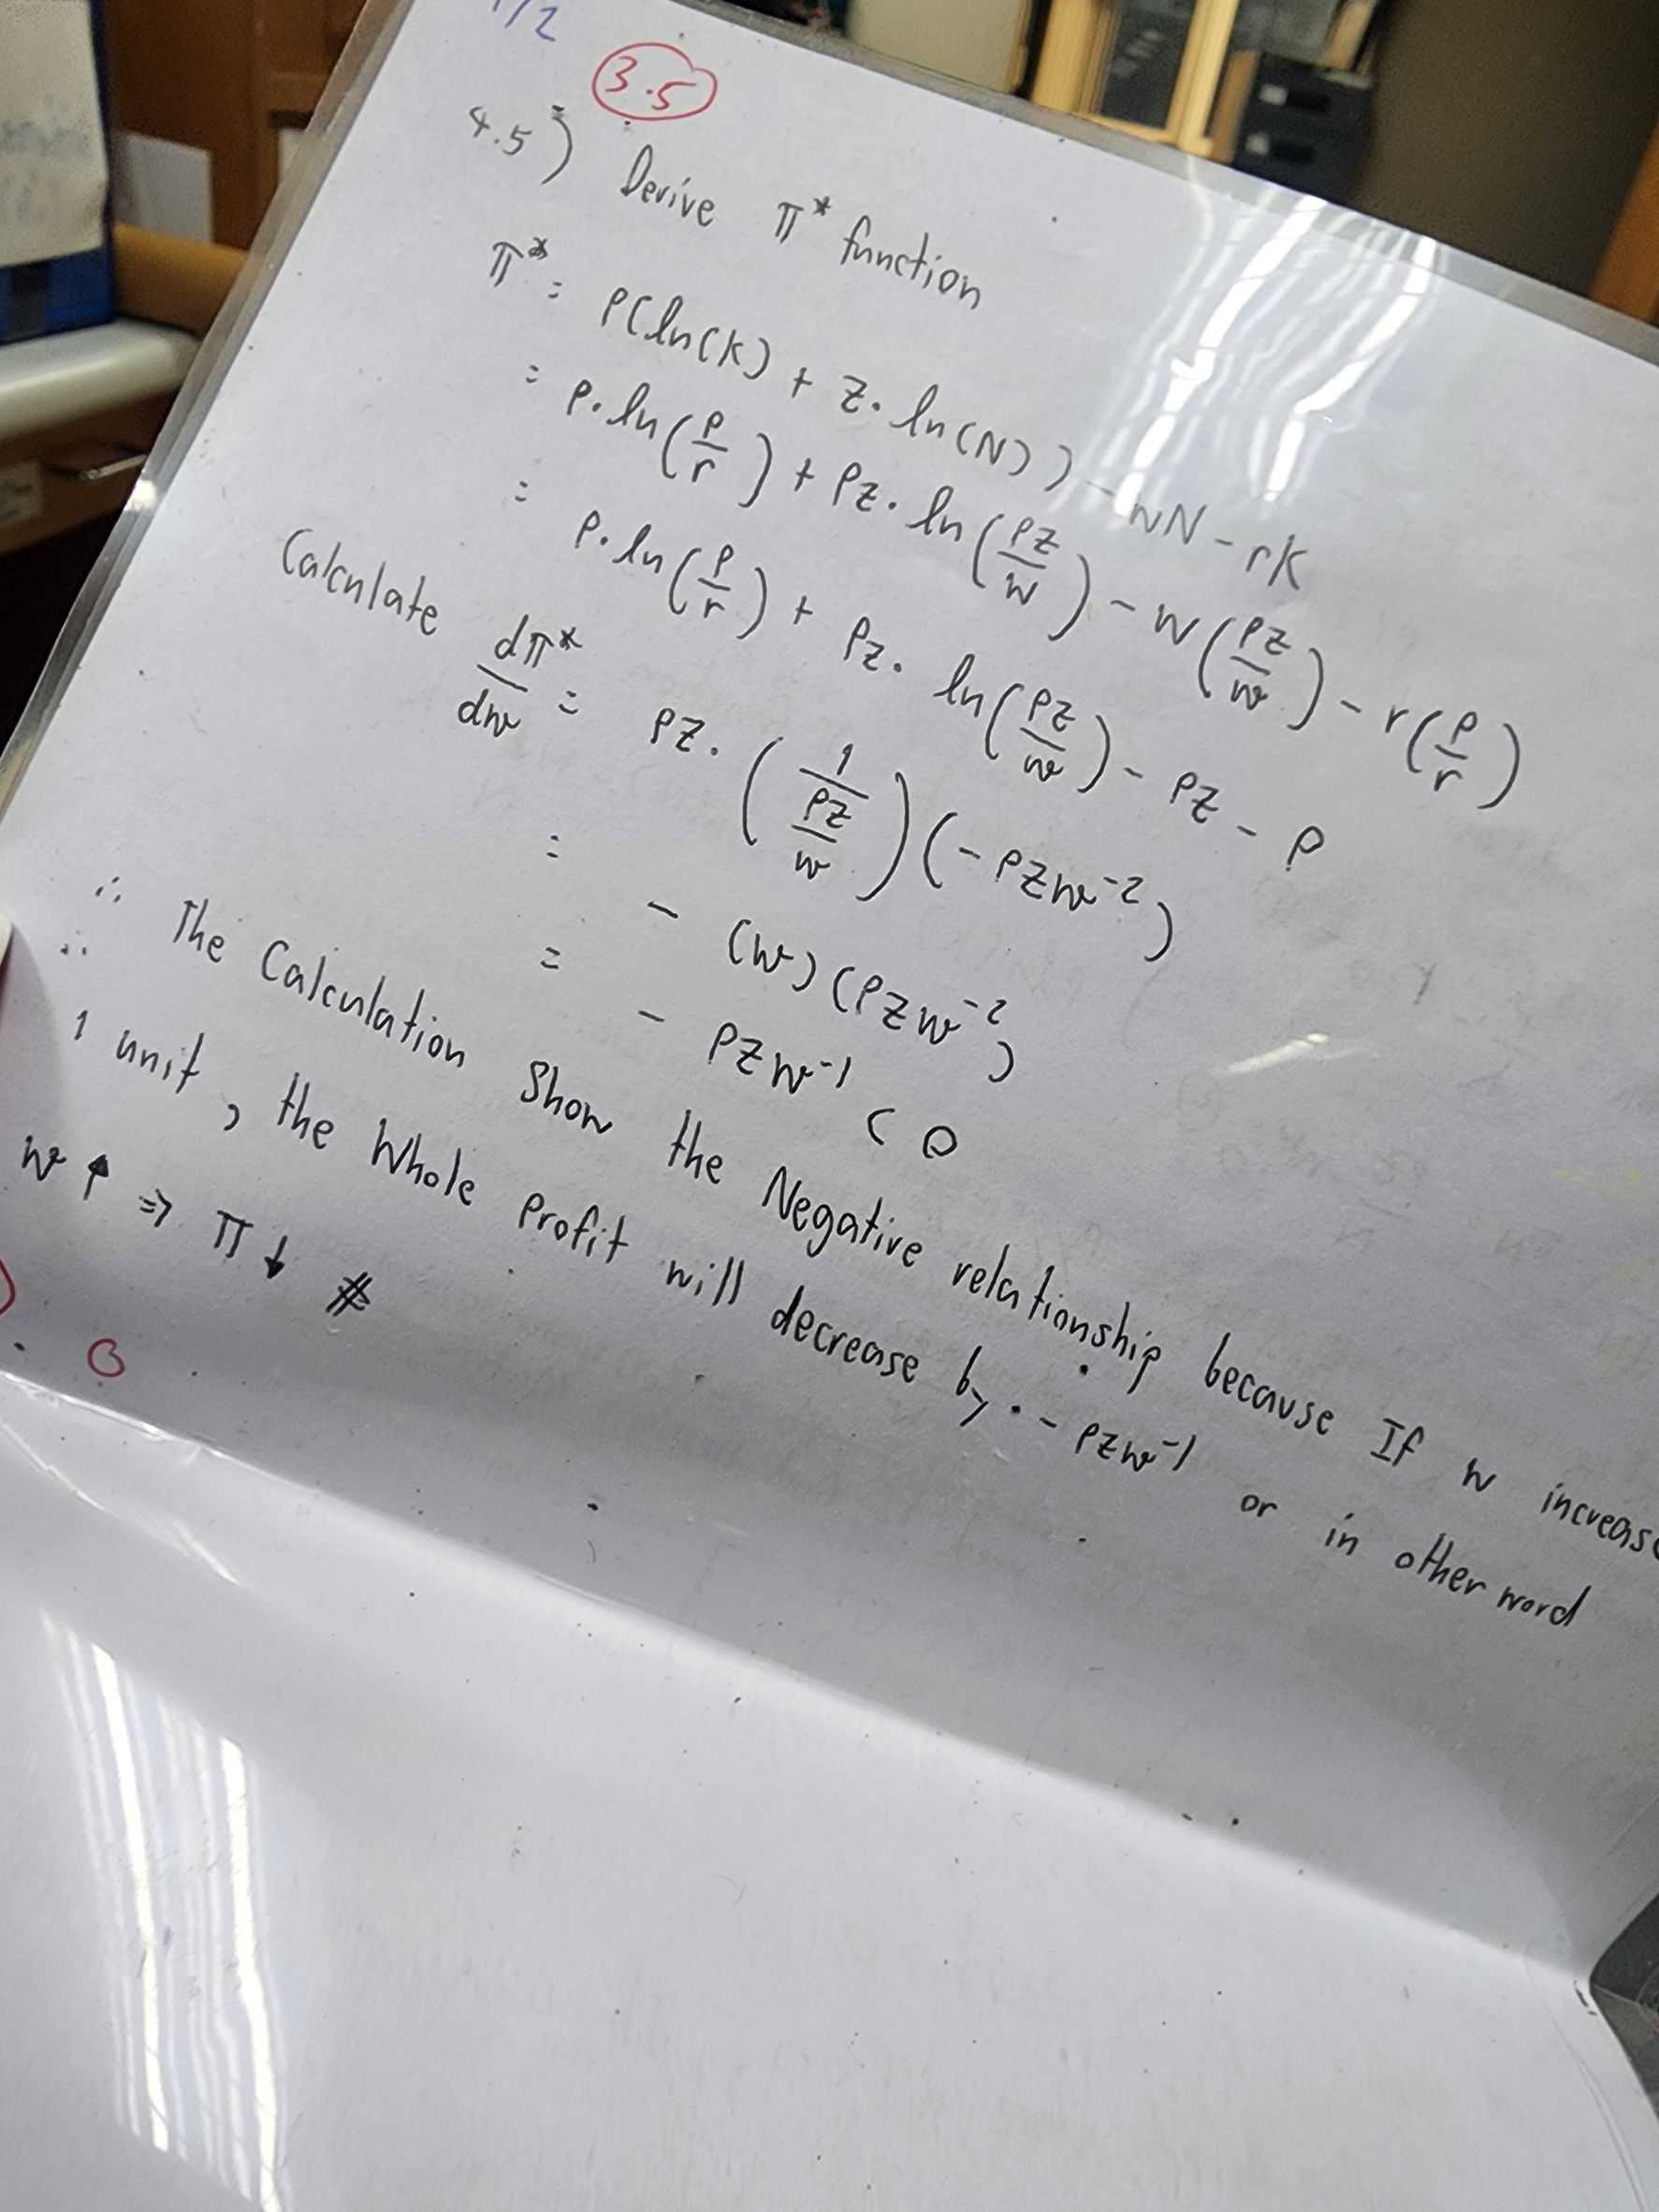 1/2
3.5
4.5) Derive π* function
π* = P(ln(K) + Z. ln(N)) - wN - rK
= P. ln(P/r) + PZ. ln(PZ/w) - w(PZ/w) - r(P/r)
= P. ln(P/r) + PZ. ln(PZ/w) - PZ - P
Calculate dπ*/dw = PZ. (1/(PZ/w)) (-PZw⁻²)
= - (w)(PZw⁻²)
= - PZw⁻¹ < 0
∴ The Calculation Show the Negative relationship because If w increase
1 unit, the Whole Profit will decrease by - PZw⁻¹ or in other word
w ↑ ⇒ π ↓ #